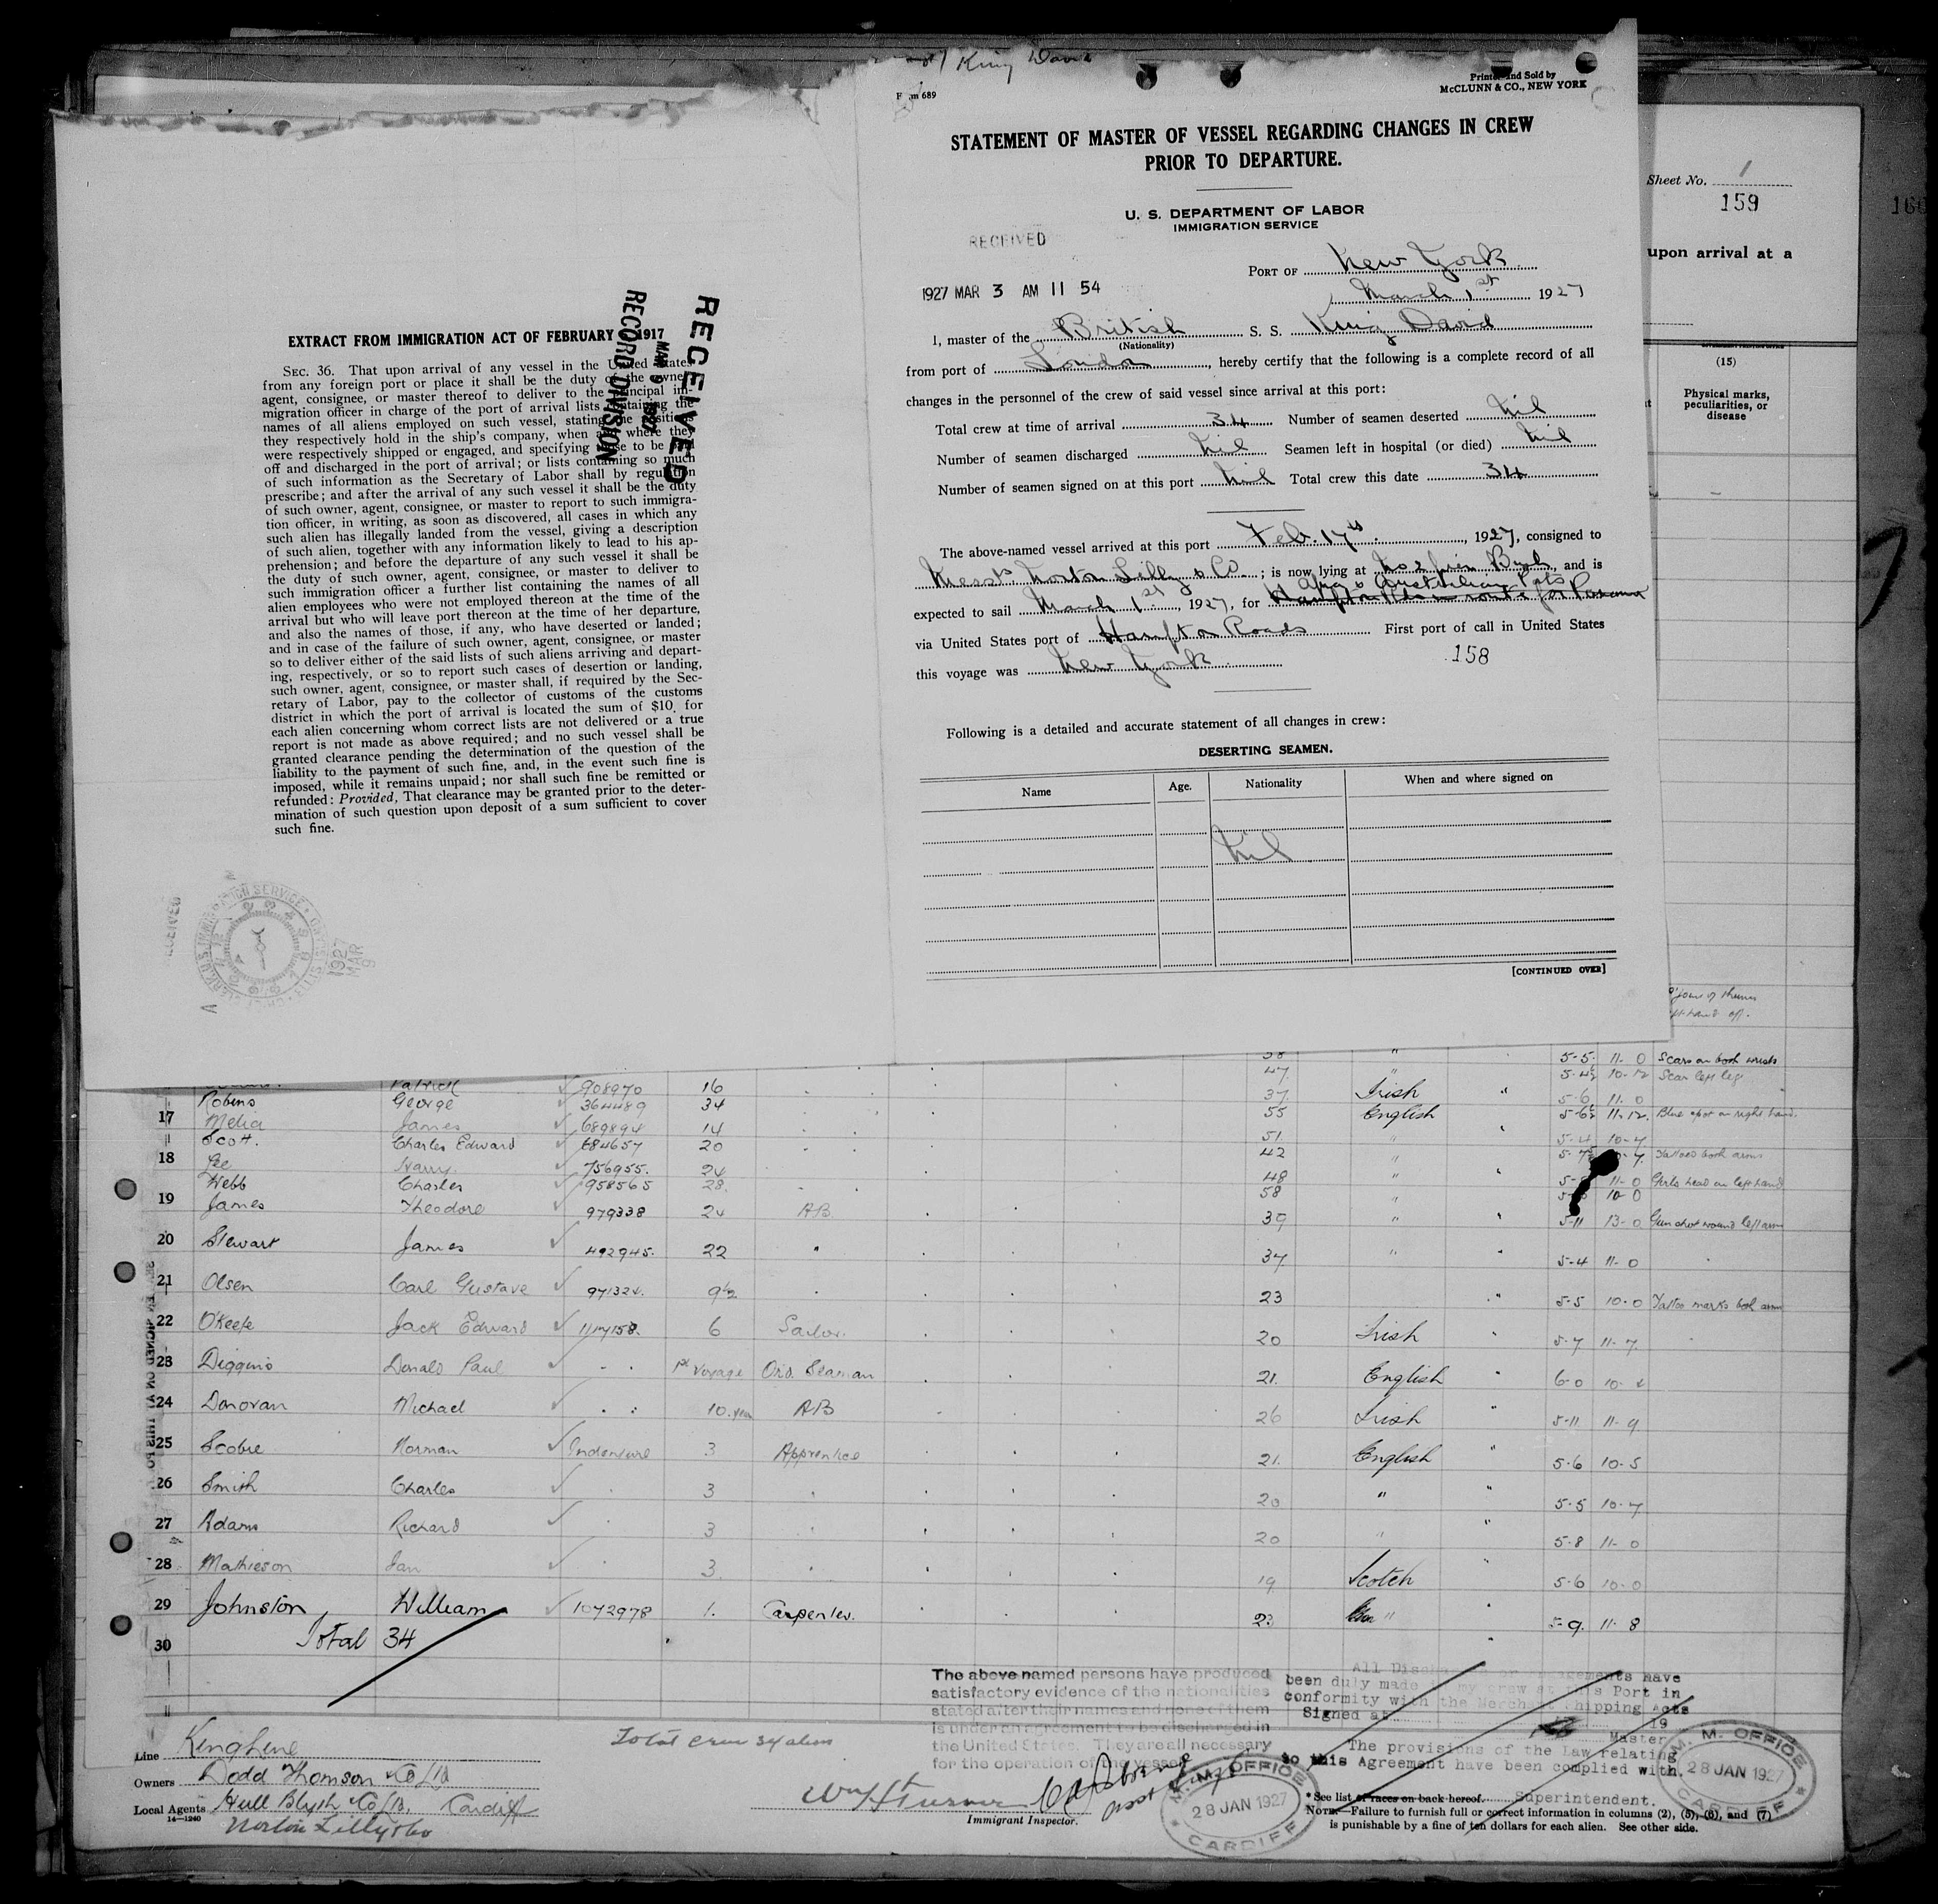 King David
Form 689
Printed and Sold by
McCLUNN & CO., NEW YORK
STATEMENT OF MASTER OF VESSEL REGARDING CHANGES IN CREW
PRIOR TO DEPARTURE.
U. S. DEPARTMENT OF LABOR
IMMIGRATION SERVICE
RECEIVED
1927 MAR 3 AM 11 54
PORT OF New York
March 1st 1927
I, master of the British S. S. King David
(Nationality)
from port of London, hereby certify that the following is a complete record of all
changes in the personnel of the crew of said vessel since arrival at this port:
Total crew at time of arrival 34 Number of seamen deserted Nil
Number of seamen discharged Nil Seamen left in hospital (or died) Nil
Number of seamen signed on at this port Nil Total crew this date 34
The above-named vessel arrived at this port Feb. 17th, 1927, consigned to
Messrs Norton Lilly & Co.; is now lying at No 2 pier Bush, and is
Australian Pts
expected to sail March 1st, 1927, for Hampton Rds en route for Panama
via United States port of Hampton Roads First port of call in United States
this voyage was New York
158
Following is a detailed and accurate statement of all changes in crew:
DESERTING SEAMEN.
Name Age. Nationality When and where signed on
Nil
[CONTINUED OVER]
EXTRACT FROM IMMIGRATION ACT OF FEBRUARY 1917
SEC. 36. That upon arrival of any vessel in the United States
from any foreign port or place it shall be the duty of the owner,
agent, consignee, or master thereof to deliver to the principal im-
migration officer in charge of the port of arrival lists containing the
names of all aliens employed on such vessel, stating the positions
they respectively hold in the ship's company, when and where they
were respectively shipped or engaged, and specifying those to be paid
off and discharged in the port of arrival; or lists containing so much
of such information as the Secretary of Labor shall by regulation
prescribe; and after the arrival of any such vessel it shall be the duty
of such owner, agent, consignee, or master to report to such immigra-
tion officer, in writing, as soon as discovered, all cases in which any
such alien has illegally landed from the vessel, giving a description
of such alien, together with any information likely to lead to his ap-
prehension; and before the departure of any such vessel it shall be
the duty of such owner, agent, consignee, or master to deliver to
such immigration officer a further list containing the names of all
alien employees who were not employed thereon at the time of the
arrival but who will leave port thereon at the time of her departure,
and also the names of those, if any, who have deserted or landed;
and in case of the failure of such owner, agent, consignee, or master
so to deliver either of the said lists of such aliens arriving and depart-
ing, respectively, or so to report such cases of desertion or landing,
such owner, agent, consignee, or master shall, if required by the Sec-
retary of Labor, pay to the collector of customs of the customs
district in which the port of arrival is located the sum of $10 for
each alien concerning whom correct lists are not delivered or a true
report is not made as above required; and no such vessel shall be
granted clearance pending the determination of the question of the
liability to the payment of such fine, and, in the event such fine is
imposed, while it remains unpaid; nor shall such fine be remitted or
refunded: Provided, That clearance may be granted prior to the deter-
mination of such question upon deposit of a sum sufficient to cover
such fine.
RECEIVED
MAR 9 1927
RECORD DIVISION
1927
MAR
9
Sheet No. 1
159
160
upon arrival at a
(15)
Physical marks,
peculiarities, or
disease
38 " 5-5 11-0 Scars on both wrists
47 5-4½ 10-12 Scar left leg
Patrick 908970 16 37 Irish " 5-6 11-0
Robins George 364489 34 55 English 5-6½ 11-12 Blue spot on right hand.
17 Melia James 689894 14 51 " 5-4 10-7
Scott. Charles Edward 684657 20 42 " Tattoed both arms
18 Lee Harry 756955. 24 48 " 11-0 Girls head on left hand
Webb Charles 958565 28 58 10-0
19 James Theodore 979338 24 AB 39 " 5-11 13-0 Gun shot wound left arm
20 Stewart James 492945. 22 " 37 " 5-4 11-0
21 Olsen Carl Gustave 971324. 9½ 23 " 5-5 10-0 Tattoo marks both arms
22 O'Keefe Jack Edward 1117158. 6 Sailor. 20 Irish " 5-7 11-7
23 Diggins Donald Paul 1st voyage Ord. Seaman 21. English " 6-0 10-
24 Donovan Michael 10 years AB 26 Irish " 5-11 11-9
25 Scobie Norman Indenture 3 Apprentice 21. English " 5-6 10-5
26 Smith Charles 3 20 " " 5-5 10-7
27 Adams Richard 3 20 " " 5-8 11-0
28 Mathieson Ian 3 19 Scotch " 5-6 10-0
29 Johnston William 1072978 1. Carpenter. 23 " 5-9. 11-8
30 Total 34
The above named persons have produced
satisfactory evidence of the nationalities
stated after their names and none of them
is under an agreement to be discharged in
the United States. They are all necessary
for the operation of the vessel
All Discharges or Engagements have
been duly made of my crew at this Port in
conformity with the Merchant Shipping Acts
Signed at 19
Master
The provisions of the Law relating
to this Agreement have been complied with.
Superintendent.
Total crew 34 aliens
Line King Line
Owners Dodd Thomson & Co Ltd
Local Agents Hull Blyth & Co Ltd. Cardiff
14—1240
Norton Lilly & Co
Immigrant Inspector.
M. M. OFFICE
28 JAN 1927
CARDIFF
M. M. OFFICE
28 JAN 1927
CARDIFF
*See list of races on back hereof.
NOTE.—Failure to furnish full or correct information in columns (2), (5), (6), and (7)
is punishable by a fine of ten dollars for each alien. See other side.